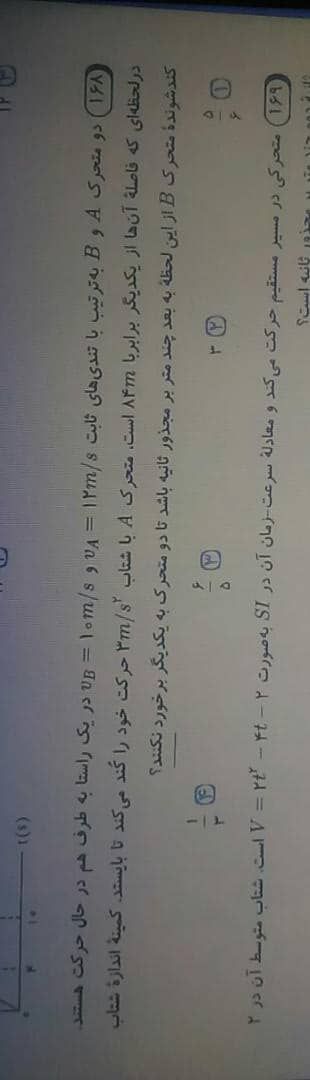 ۱۶۸ دو متحرک A و B به‌ترتیب با تندی‌های ثابت v_A = ۱۲m/s و v_B = ۱۰m/s در یک راستا به طرف هم در حال حرکت هستند.
درلحظه‌ای که فاصلهٔ آن‌ها از یکدیگر برابر با ۸۴m است، متحرک A با شتاب ۳m/s² حرکت خود را کُند می‌کند تا بایستد. کمینهٔ اندازهٔ شتاب
کندشوندهٔ متحرک B از این لحظهٔ به بعد چند متر بر مجذور ثانیه باشد تا دو متحرک به یکدیگر برخورد نکنند؟
۱ ۵/۶ ۲ ۳ ۳ ۶/۵ ۴ ۱/۳
۱۶۹ متحرکی در مسیر مستقیم حرکت می‌کند و معادلهٔ سرعت-زمان آن در SI به‌صورت V = ۲t² − ۴t − ۲ است. شتاب متوسط آن در ۲
متر بر مجذور ثانیه است؟
t(s)
۴ ۱۰